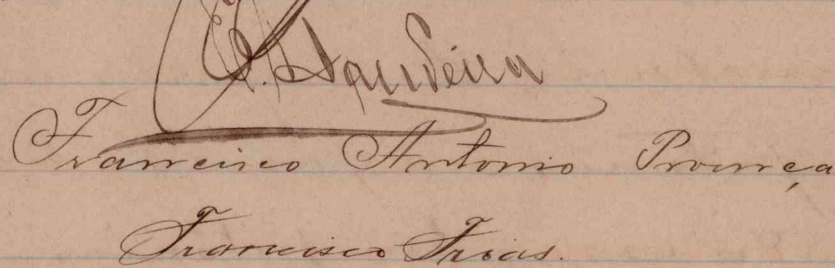 Bandeira
Francisco Antonio Proença
Francisco Frias.